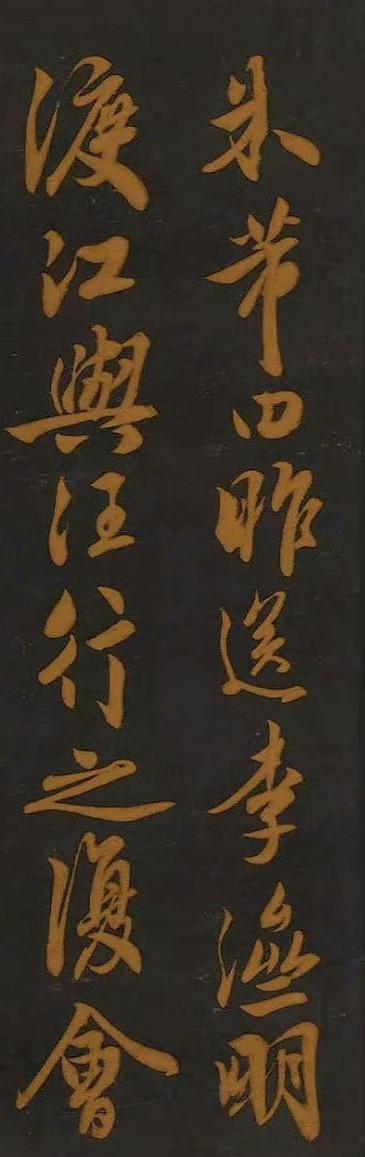 米芾曰昨送李明
渡江與汪行之復會